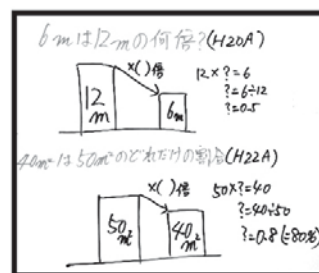 6mは12mの何倍?(H20A)
×( )倍
12m
6m
12×?=6
?=6÷12
?=0.5
40m²は50m²のどれだけの割合(H22A)
×( )倍
50m²
40m²
50×?=40
?=40÷50
?=0.8(=80%)